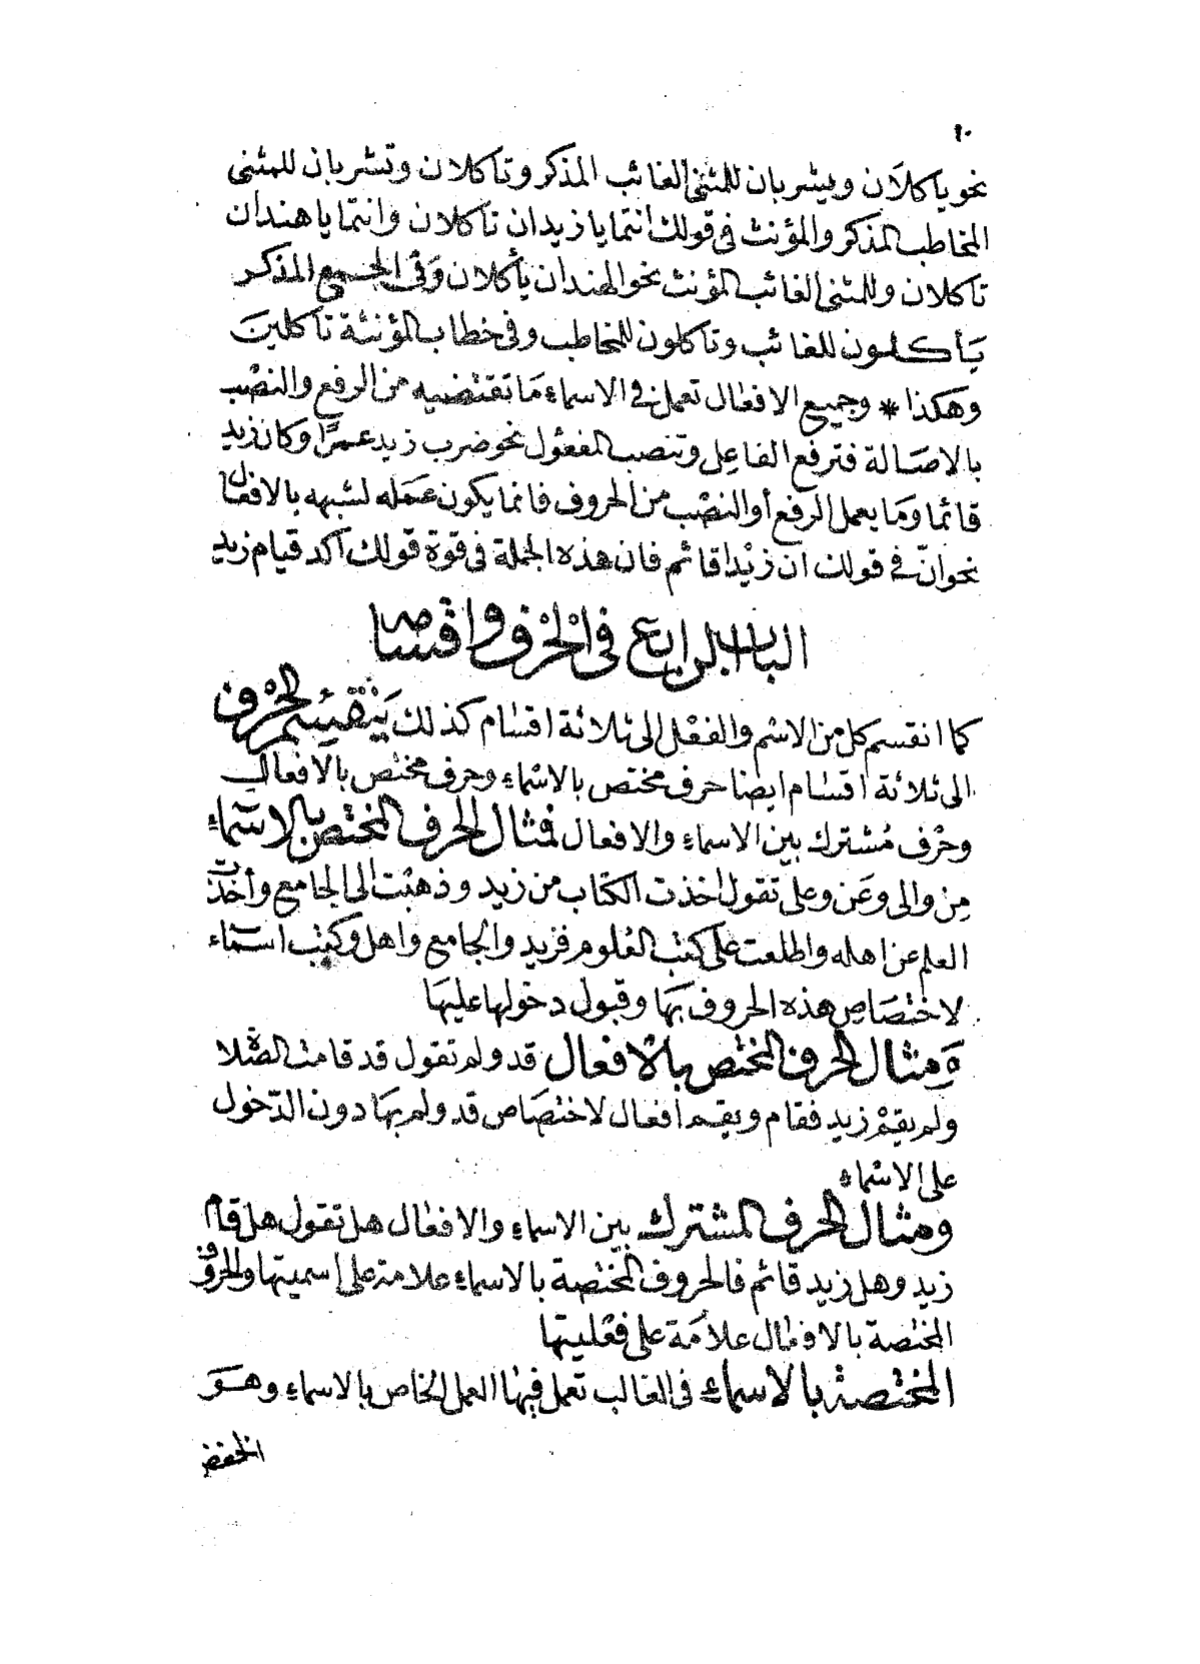 ١٠
نحو ياكلان ويشربان للمثنى الغائب المذكر وتاكلان وتشربان للمثنى
المخاطب المذكر والمؤنث فى قولك انتما يا زيدان تاكلان وانتما يا هندان
تاكلان وللمثنى الغائب المؤنث نحو الهندان يأكلان وفى الجمع المذكر
يأكلون للغائب وتاكلون للمخاطب وفى خطاب المؤنثة تاكلين
وهكذا * وجميع الافعال تعمل فى الاسماء ما تقتضيه من الرفع والنصب
بالاصالة فترفع الفاعل وتنصب المفعول نحو ضرب زيد عمرًا وكان زيد
قائما وما يعمل الرفع أو النصب من الحروف فانما يكون عمله لشبهه بالافعال
نحو انّ فى قولك ان زيدا قائم فان هذه الجملة فى قوة قولك اكد قيام زيد
الباب الرابع فى الحرف واقسامه
كما انقسم كل من الاسم والفعل الى ثلاثة اقسام كذلك ينقسم الحرف
الى ثلاثة اقسام ايضا حرف مختص بالاسماء وحرف مختص بالافعال
وحرف مُشترك بين الاسماء والافعال فمثال الحرف المختص بالاسماء
مِن والى وعَن وعلى تقول اخذت الكتاب من زيد وذهبت الى الجامع وأخذت
العلم عن اهله واطلعت على كتب العلوم فزيد والجامع واهل وكتب اسماء
لاختصاص هذه الحروف بها وقبول دخولها عليها
ومثال الحرف المختص بالافعال قد ولم تقول قد قامت الصلاة
ولم يقم زيد فقام ويقم أفعال لاختصاص قد ولم بها دون الدّخول
على الاسماء
ومثال الحرف المشترك بين الاسماء والافعال هل تقول هل قام
زيد وهل زيد قائم فالحروف المختصة بالاسماء علامة على اسميتها والحروف
المختصة بالافعال علامة على فعليتها
المختصة بالاسماء فى الغالب تعمل فيها العمل الخاص بالاسماء وهو
الخفض